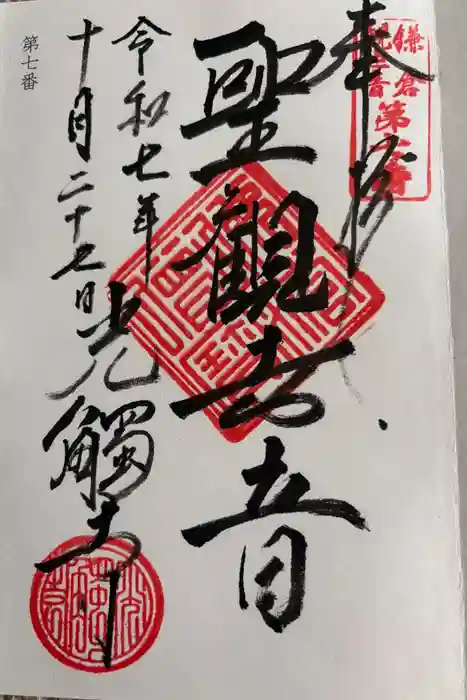 奉拝
鎌倉
観世音
第七番
聖觀世音
令和七年
十月二十七日
光觸寺
第七番